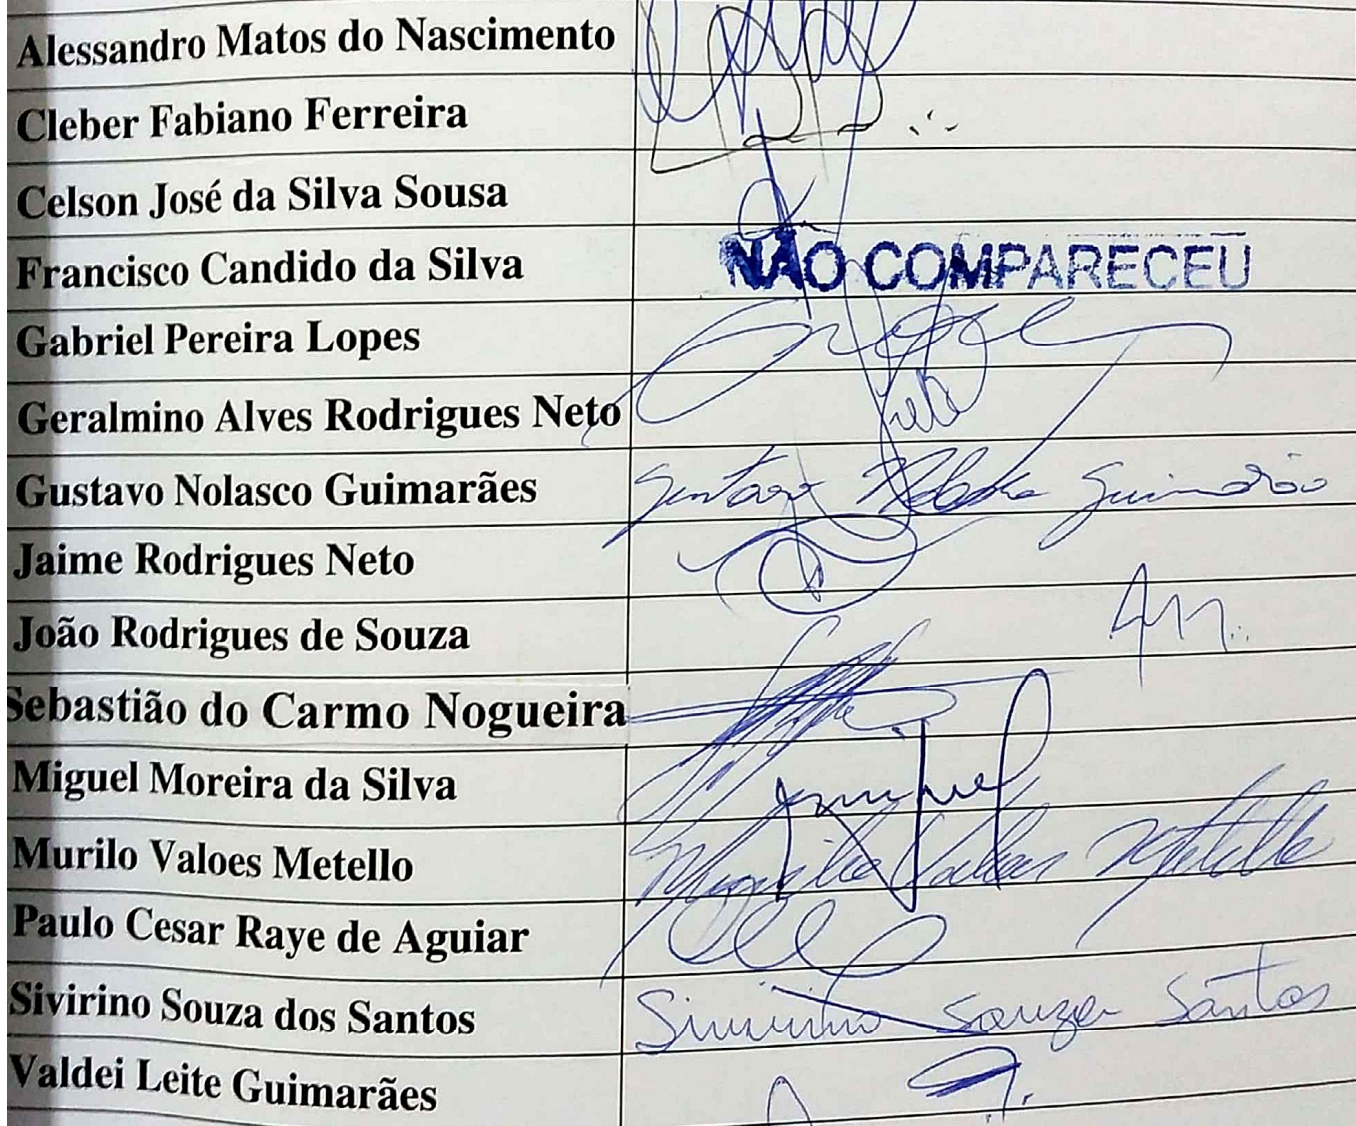 Alessandro Matos do Nascimento
Cleber Fabiano Ferreira
Celson José da Silva Sousa
Francisco Candido da Silva NÃO COMPARECEU
Gabriel Pereira Lopes
Geralmino Alves Rodrigues Neto
Gustavo Nolasco Guimarães Gustavo Nolasco Guimarães
Jaime Rodrigues Neto
João Rodrigues de Souza
Sebastião do Carmo Nogueira
Miguel Moreira da Silva
Murilo Valoes Metello Murilo Valoes Metello
Paulo Cesar Raye de Aguiar
Sivirino Souza dos Santos Sivirino Souza Santos
Valdei Leite Guimarães